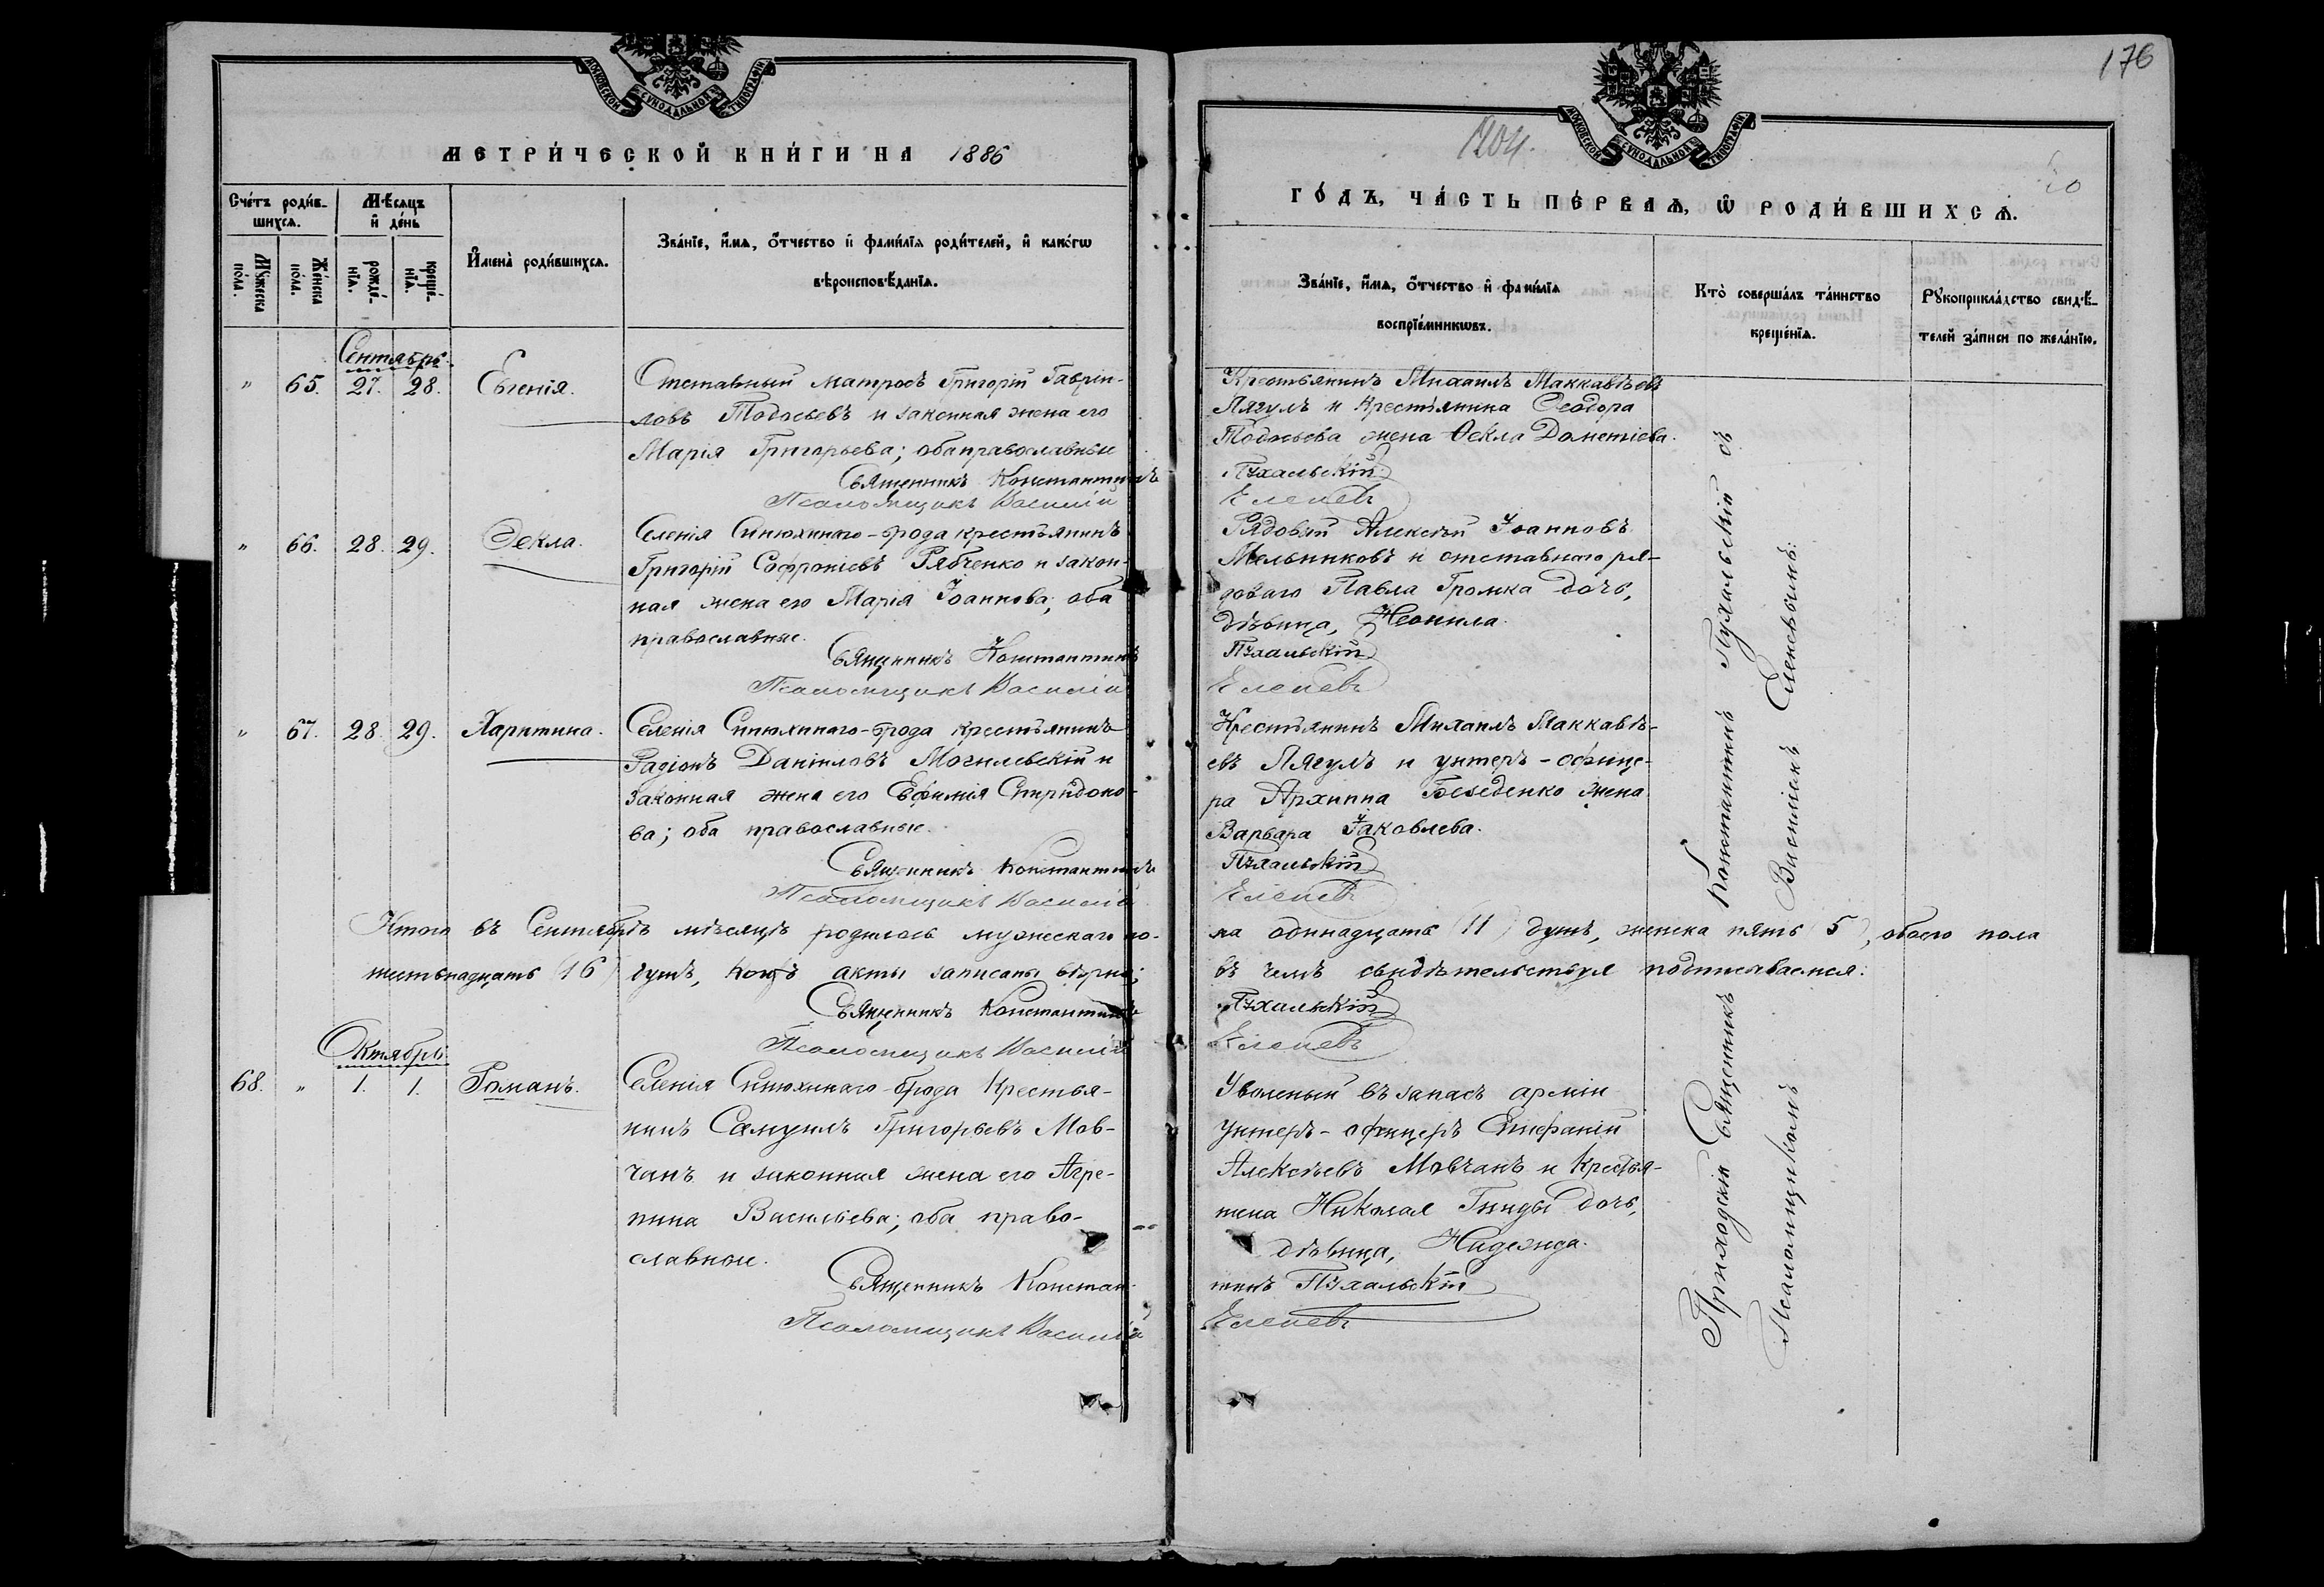 МОСКОВСКОЙ СѴНОДАЛЬНОЙ ТИПОГРАФІИ
МЕТРИ́ЧЕСКОЙ КНИ́ГИ НА 1886
Сче́тъ роди́в-
шихсѧ.
Мѣ́сѧцъ
и҆ де́нь
Мꙋ́жеска
по́ла.
Же́нска
по́ла.
рожде́-
нїѧ.
креще́-
нїѧ.
И҆мена̀ роди́вшихсѧ.
Зва́нїе, и҆́мѧ, ѻ҆́тчество и҆ фами́лїѧ роди́телей, и҆ како́гѡ
вѣроисповѣ́данїѧ.
Сентябрь.
" 65. 27. 28. Евгенія.
Отставный матросъ Григорій Гаврiи-
ловъ Тодосьевъ и законная жена его
Марія Григорьева; оба православные
Священникъ Константинъ
Псаломщикъ Василій
" 66. 28. 29. Ѳекла.
Селенія Синюхинаго-брода крестьянинъ
Григорій Софроніевъ Рябченко и закон-
ная жена его Марія Іоаннова; оба
православные.
Священникъ Константинъ
Псаломщикъ Василій
" 67. 28. 29. Харитина.
Селенія Синюхинаго-брода крестьянинъ
Радіонъ Даніиловъ Могилевскій и
законная жена его Евфимія Спиридоно-
ва; оба православные.
Священникъ Константинъ
Псаломщикъ Василій
Итого въ Сентябрѣ мѣсяцѣ родилось мужескаго по-
шестьнадцать (16) душъ, коихъ акты записаны вѣрно;
Священникъ Константинъ
Псаломщикъ Василій
Октябрь.
68. " 1. 1. Романъ.
Селенія Синюхинаго-брода Крестья-
нинъ Самуилъ Григорьевъ Мов-
чанъ и законная жена его Агре-
пина Васильева; оба право-
славные.
Священникъ Констан-
Псаломщикъ Василій
176
1204.
МОСКОВСКОЙ СѴНОДАЛЬНОЙ ТИПОГРАФІИ
ГО́ДЪ, ЧА́СТЬ ПЕ́РВАѦ, Ѡ҆ РОДИ́ВШИХСѦ.
Зва́нїе, и҆́мѧ, ѻ҆́тчество и҆ фами́лїѧ
воспрїе́мникѡвъ.
Кто̀ соверша́лъ та́инство
креще́нїѧ.
Рꙋкоприкла́дство свидѣ́-
телей за́писи по жела́нїю.
Крестьянинъ Михаилъ Маккавѣевъ
Лягулъ и крестьянина Ѳеодора
Тодосьева жена Ѳекла Дометіева.
Пухальскій
Еленевъ
Рядовый Алексѣй Іоанновъ
Мельниковъ и отставнаго ря-
доваго Павла Громка дочь,
дѣвица, Неонила.
Пухальскій
Еленевъ
Крестьянинъ Михаилъ Маккавѣ-
евъ Лягулъ и унтеръ-офице-
ра Архиппа Беседенко жена
Варвара Іаковлева.
Пухальскій
Еленевъ
ла одинадцать (11) душъ, женска пять (5), обоего пола
въ чемъ свидѣтельствуя подписываемся:
Пухальскій
Еленевъ
Уволеный въ запасъ арміи
Унтеръ-офицеръ Епифаній
Алексѣевъ Мовчанъ и Крестья-
нина Николая Гниды дочь,
дѣвица, Надежда.
тинъ Пухальскій
Еленевъ
Приходскій Священникъ Константинъ Пухальскій съ
Псаломщикомъ Василіемъ Еленевымъ: